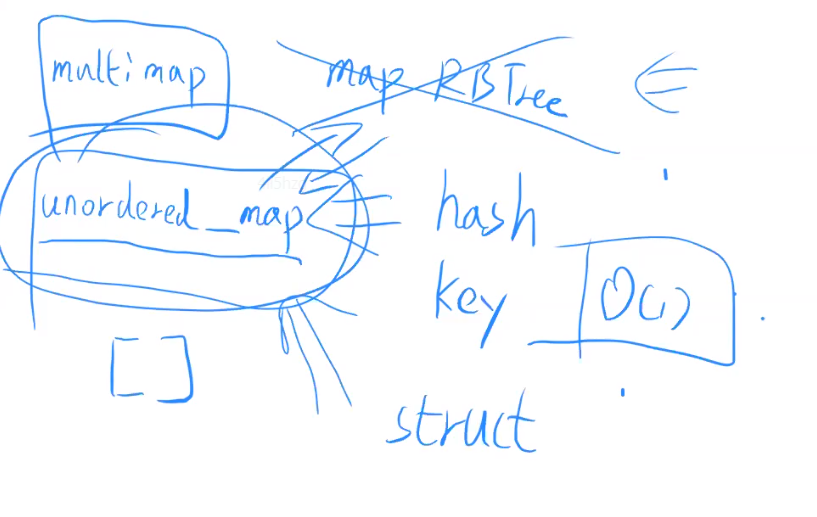 multimap
map RBTree
unordered_map
hash
key O(1)
[ ]
struct